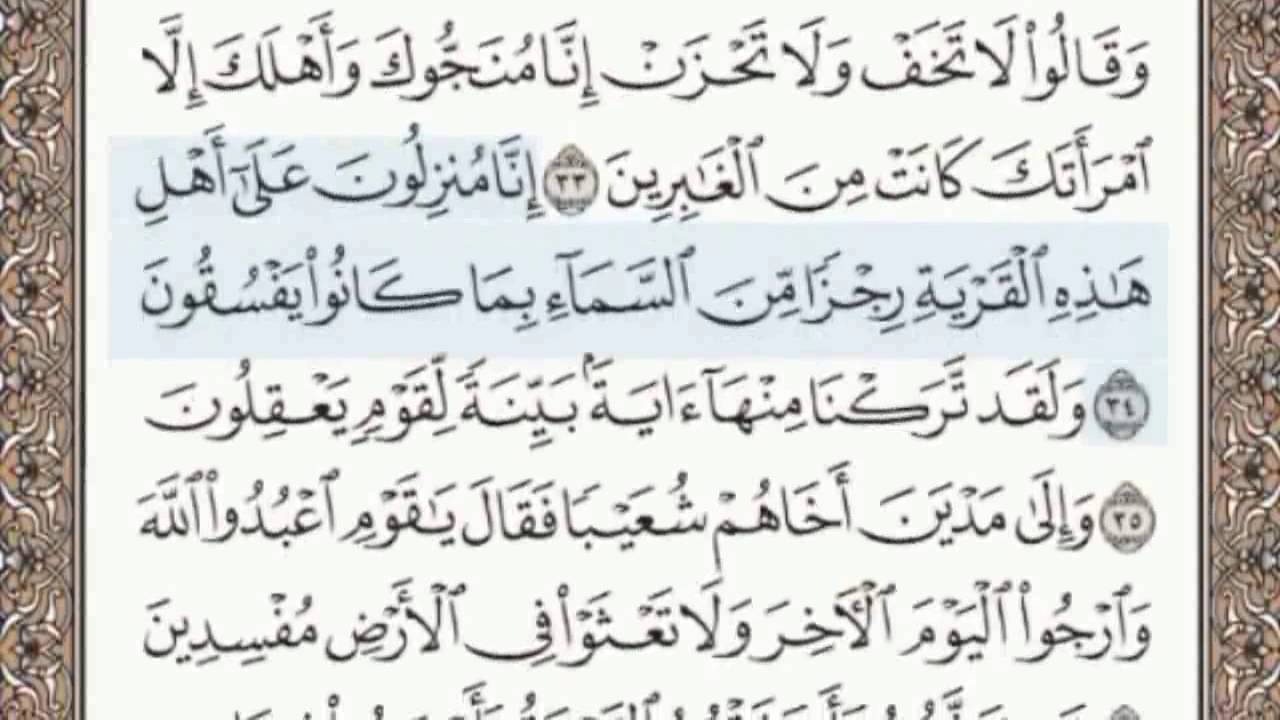 وَقَالُوا۟ لَا تَخَفْ وَلَا تَحْزَنْ إِنَّا مُنَجُّوكَ وَأَهْلَكَ إِلَّا
ٱمْرَأَتَكَ كَانَتْ مِنَ ٱلْغَٰبِرِينَ ٣٣ إِنَّا مُنزِلُونَ عَلَىٰٓ أَهْلِ
هَٰذِهِ ٱلْقَرْيَةِ رِجْزًا مِّنَ ٱلسَّمَآءِ بِمَا كَانُوا۟ يَفْسُقُونَ
٣٤ وَلَقَد تَّرَكْنَا مِنْهَآ ءَايَةًۢ بَيِّنَةً لِّقَوْمٍ يَعْقِلُونَ
٣٥ وَإِلَىٰ مَدْيَنَ أَخَاهُمْ شُعَيْبًا فَقَالَ يَٰقَوْمِ ٱعْبُدُوا۟ ٱللَّهَ
وَٱرْجُوا۟ ٱلْيَوْمَ ٱلْءَاخِرَ وَلَا تَعْثَوْا۟ فِى ٱلْأَرْضِ مُفْسِدِينَ